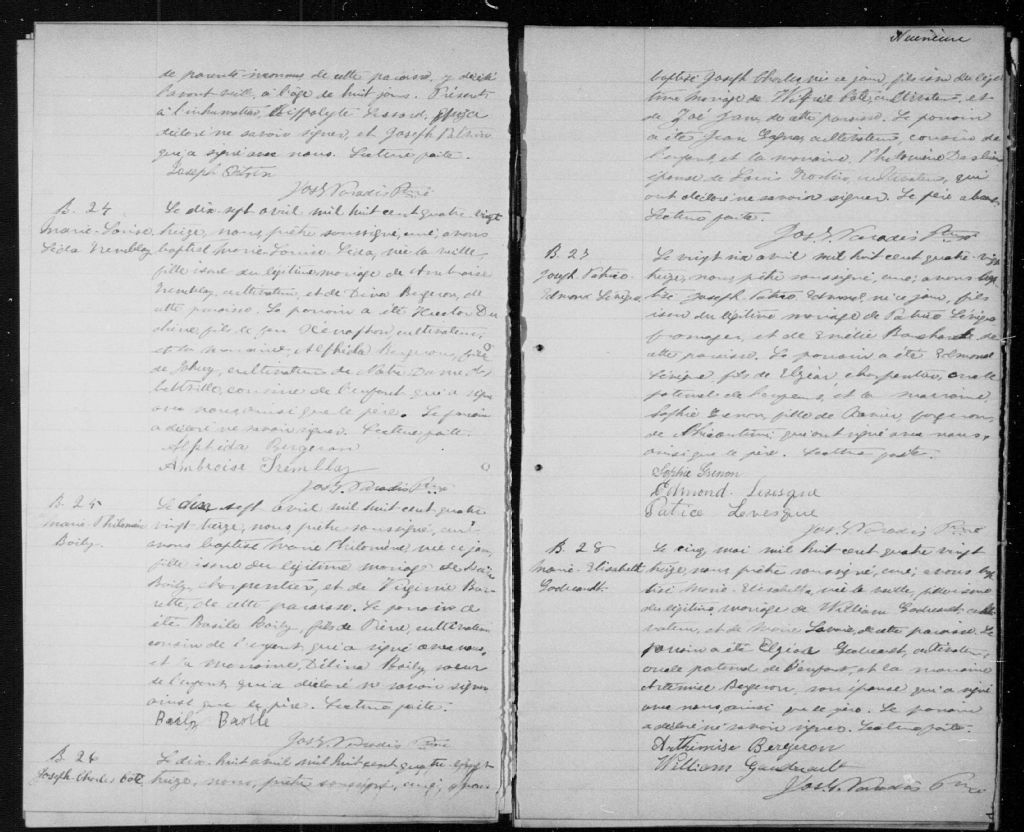 de parents inconnus de cette paroisse, y décédé
l'avant veille, à l'âge de huit jours. Présents
à l'inhumation, Hippolyte Lessard, qui a
déclaré ne savoir signer, et Joseph
qui a signé avec nous. Lecture faite.
Joseph
Jos. Paradis Ptre
B. 24
Marie-Louise
Léda Tremblay
Le dix sept avril mil huit cent quatre vingt
treize, nous, prêtre soussigné, curé, avons
baptisé Marie-Louise Léda, née la veille,
fille issue du légitime mariage de Ambroise
Tremblay, cultivateur, et de Dina Bergeron, de
cette paroisse. Le parrain a été Hector Du
chêne, fils de feu cultivateur,
et la marraine, Alphéda Bergeron, fille
de Johny, cultivateur de Notre Dame d'Hé
bertville, cousine de l'enfant qui a signé
avec nous, ainsi que le père. Le parrain
a déclaré ne savoir signer. Lecture faite.
Alphéda Bergeron
Ambroise Tremblay
Jos. Paradis Ptre
B. 25
Marie Philomène
Boily.
Le dix sept avril mil huit cent quatre
vingt treize, nous, prêtre soussigné, curé
avons baptisé Marie Philomène, née ce jour,
fille issue du légitime mariage de
Boily, charpentier, et de Virginie
de cette paroisse. Le parrain a
été Basile Boily, fils de Pierre, cultivateur
cousin de l'enfant, qui a signé avec nous,
et la marraine, Délina Boily soeur
de l'enfant, qui a déclaré ne savoir signer
ainsi que le père. Lecture faite.
Boily Basile
Jos. Paradis Ptre
B. 26
Joseph Charles Coté
Le dix huit avril mil huit cent quatre vingt
treize, nous, prêtre soussigné, curé, avons
Neuvième
baptisé Joseph Charles, né ce jour, fils issu du légi
time mariage de Wilfrid Coté, cultivateur, et
de Zoé de cette paroisse. Le parrain
a été Jean Gagnon, cultivateur, cousin de
l'enfant, et la marraine, Philomène
épouse de Louis cultivateur, qui
ont déclaré ne savoir signer. Le père absent.
Lecture faite.
Jos. Paradis Ptre
B. 27
Joseph Patrice
Edmond Lévesque
Le vingt six avril mil huit cent quatre vingt
treize, nous, prêtre soussigné, curé, avons bap
tisé Joseph Patrice Edmond, né ce jour, fils
issu du légitime mariage de Patrice Lévesque
fromager, et de Emélie Bouchard, de
cette paroisse. Le parrain a été Edmond
Lévesque, fils de Elzéar, charpentier, oncle
paternel de l'enfant, et la marraine,
Sophie Grenon, fille de forgeron,
de Chicoutimi, qui ont signé avec nous,
ainsi que le père. Lecture faite.
Sophie Grenon
Edmond Levesque
Patrice Levesque
Jos. Paradis Ptre
B. 28
Marie-Elisabeth
Godreault.
Le cinq mai mil huit cent quatre vingt
treize, nous, prêtre soussigné, curé, avons bap
tisé Marie Elisabeth, née la veille, fille issue
du légitime mariage de William Godreault, culti
vateur, et de Marie Lavoie, de cette paroisse. Le
parrain a été Elzéar Godreault, cultivateur,
oncle paternel de l'enfant, et la marraine
Artémise Bergeron, son épouse qui a signé
avec nous, ainsi que le père. Le parrain
a déclaré ne savoir signer. Lecture faite.
Arthémise Bergeron
William Gaudreault
Jos. Paradis Ptre